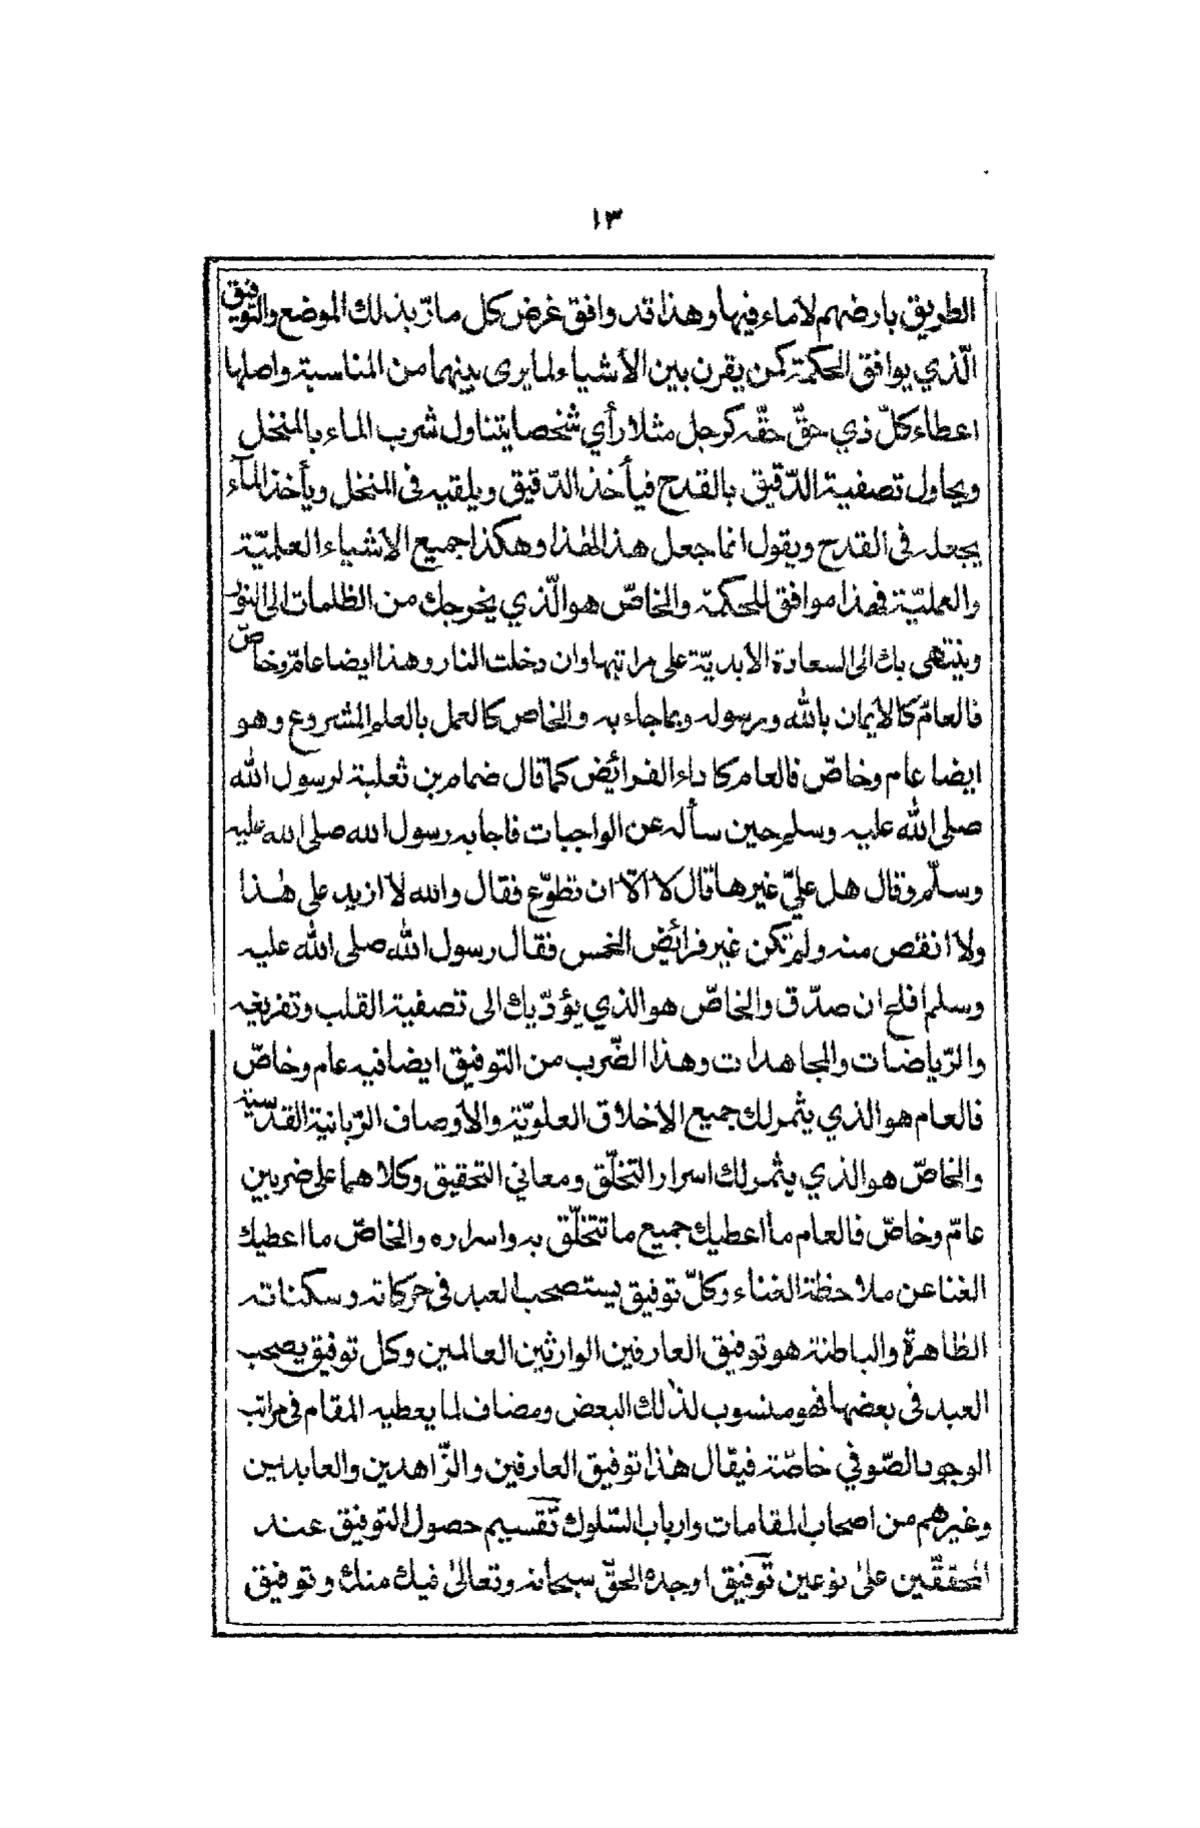 ١٣
الطريق بارضهم لاماء فيها وهذا قد وافق غرض كل مارّ بذلك الموضع والتوفيق
الّذي يوافق الحكمة كمن يقرن بين الأشياء لما يرى بينهما من المناسبة واصلها
اعطاء كلّ ذي حقّ حقّه كرجل مثلا رأي شخصا يتناول شرب الماء بالمنخل
ويحاول تصفية الدّقيق بالقدح فيأخذ الدّقيق ويلقيه في المنخل ويأخذ المآء
يجعله في القدح ويقول انما جعل هذا لهٰذا وهكذا جميع الاشياء العلميّة
والعمليّة فهذا موافق للحكمة والخاصّ هو الّذي يخرجك من الظلمات الى النور
وينتهى بك الى السعادة الابديّة على مراتبها وان دخلت النار وهذا ايضا عامّ وخاصّ
فالعامّ كالايمان بالله وبرسوله وبما جاء به والخاص كالعمل بالعلم المشروع وهو
ايضا عام وخاصّ فالعام كاداء الفرائض كما قال ضمام بن ثعلبة لرسول الله
صلى الله عليه وسلم حين سأله عن الواجبات فاجابه رسول الله صلى الله عليه
وسلّم وقال هل عليّ غيرها قال لا الّا ان تطوّع فقال والله لا ازيد على هٰذا
ولا انقص منه ولم تكن غير فرائض الخمس فقال رسول الله صلى الله عليه
وسلم افلح ان صدّق والخاصّ هو الذي يؤدّيك الى تصفية القلب وتفريغه
والرّياضات والمجاهدات وهذا الضّرب من التوفيق ايضا فيه عام وخاصّ
فالعام هو الذي يثمر لك جميع الاخلاق العلويّة والأوصاف الرّبانية القدسية
والخاصّ هو الذي يثمر لك اسرار التخلّق ومعاني التحقيق وكلاهما على ضربين
عامّ وخاصّ فالعام ما اعطيك جميع ما تتخلّق به واسراره والخاصّ ما اعطيك
الغنا عن ملاحظة الغناء وكلّ توفيق يستصحب العبد في حركاته وسكناته
الظاهرة والباطنة هو توفيق العارفين الوارثين العالمين وكل توفيق يصحب
العبد في بعضها فهو منسوب لذلك البعض ومضاف لما يعطيه المقام في مراتب
الوجود الصّوفي خاصّة فيقال هٰذا توفيق العارفين والزّاهدين والعابدين
وغيرهم من اصحاب المقامات وارباب السّلوك تقسيم حصول التوفيق عند
المحقّقين على نوعين توفيق اوجده الحقّ سبحانه وتعالىٰ فيك منك وتوفيق